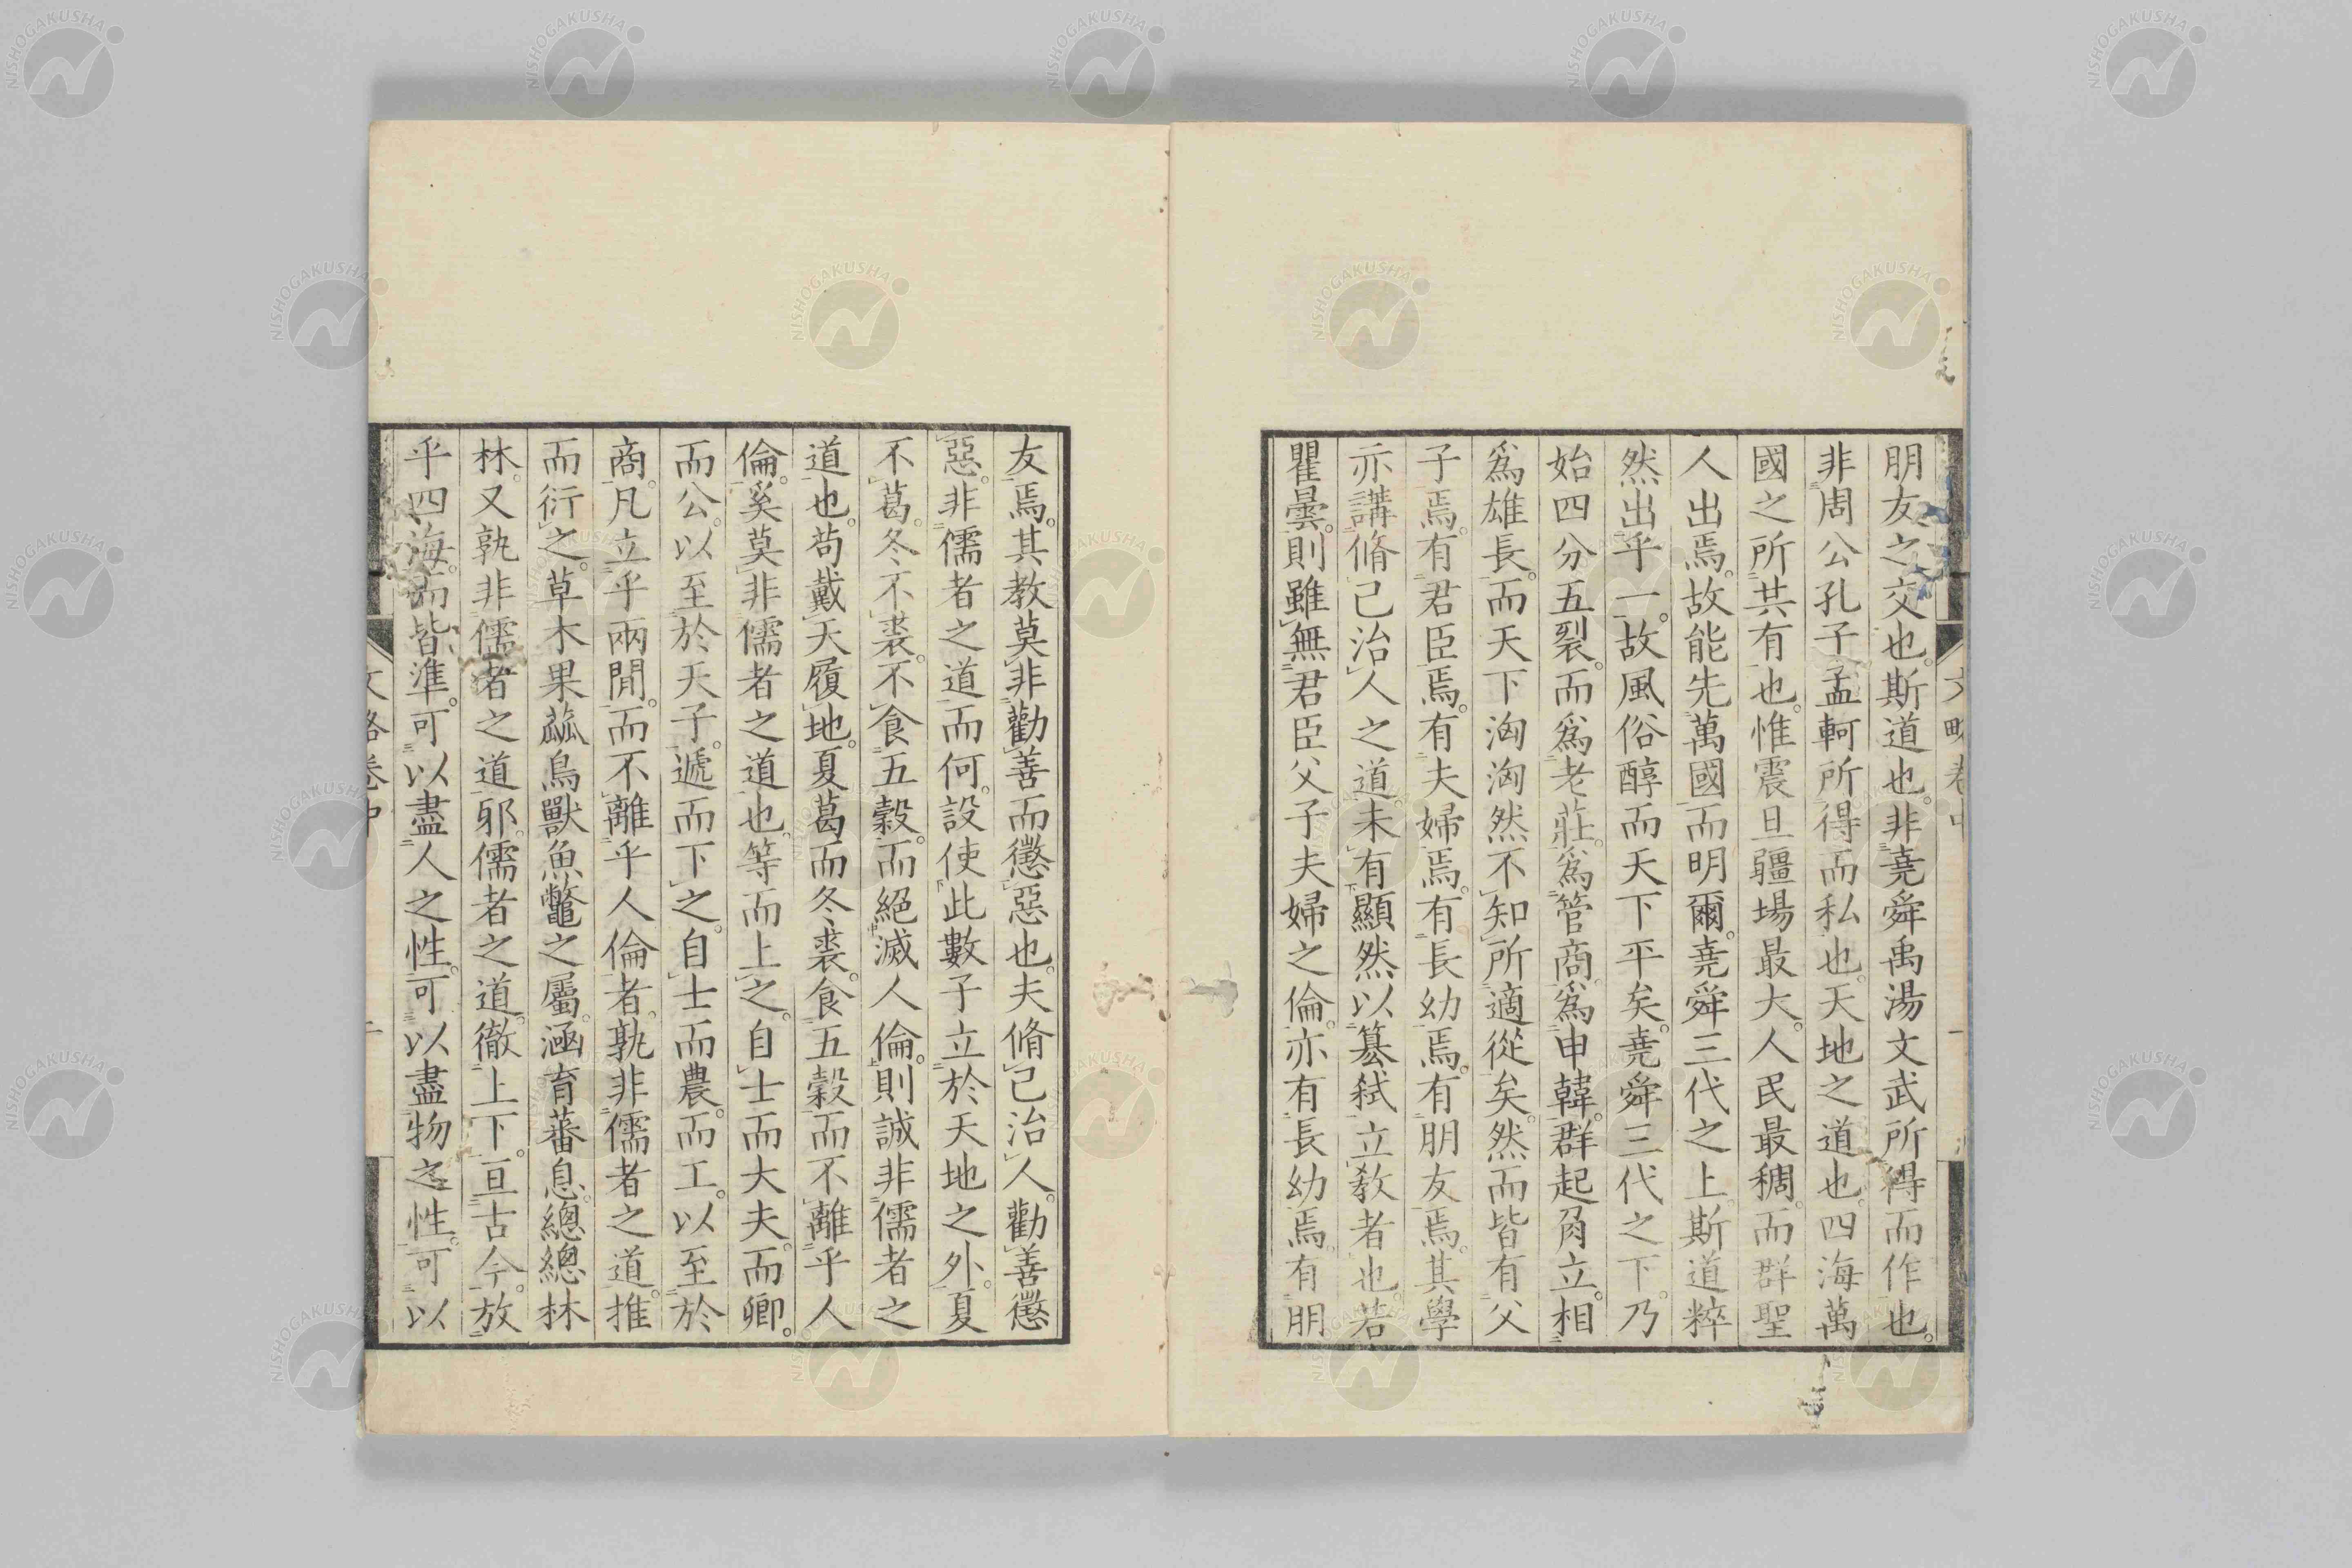 朋友之交也。斯道也。非堯舜禹湯文武所得而作也。
非周公孔子孟軻所得而私也。天地之道也。四海萬
國之所共有也。惟震旦疆場最大。人民最稠。而群聖
人出焉。故能先萬國而明爾。堯舜三代之上。斯道粹
然出乎一。故風俗醇而天下平矣。堯舜三代之下。乃
始四分五裂。而爲老莊。爲管商。爲申韓。群起角立。相
爲雄長。而天下洶洶然不知所適從矣。然而皆有父
子焉。有君臣焉。有夫婦焉。有長幼焉。有朋友焉。其學
亦講脩己治人之道。未有顯然以簒弑立教者也。若
瞿曇。則雖無君臣父子夫婦之倫。亦有長幼焉。有朋
友焉。其教莫非勸善而懲惡也。夫脩己治人。勸善懲
惡。非儒者之道而何。設使此數子立於天地之外。夏
不葛。冬不裘。不食五穀。而絕滅人倫。則誠非儒者之
道也。苟戴天履地。夏葛而冬裘。食五穀而不離乎人
倫。奚莫非儒者之道也。等而上之。自士而大夫。而卿。
而公。以至於天子。遞而下之。自士而農。而工。以至於
商。凡立乎兩間。而不離乎人倫者。孰非儒者之道。推
而衍之。草木果蓏鳥獸魚鼈之屬。涵育蕃息。總總林
林。又孰非儒者之道邪。儒者之道。徹上下。亘古今。放
乎四海。而皆準。可以盡人之性。可以盡物之性。可以
文略卷中
NISHOGAKUSHA